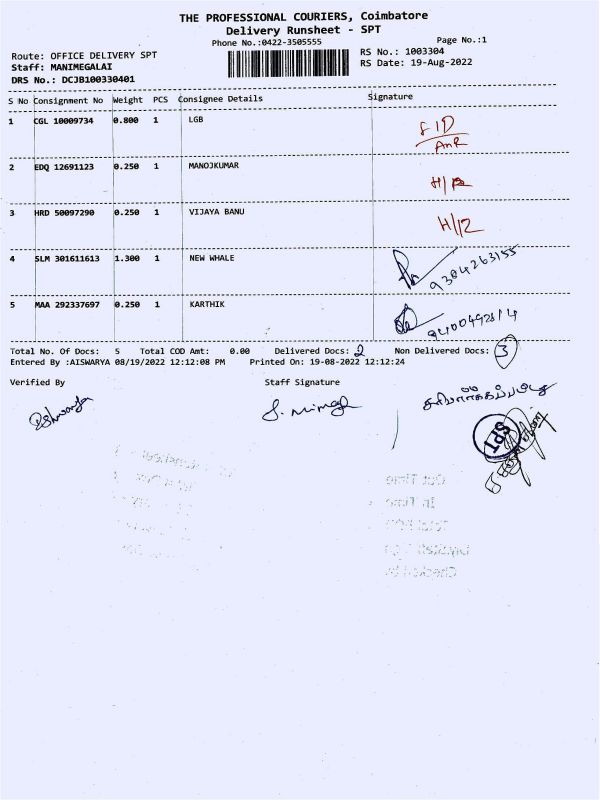 THE PROFESSIONAL COURIERS, Coimbatore
Delivery Runsheet - SPT
Phone No.:0422-3505555 Page No.:1
Route: OFFICE DELIVERY SPT RS No.: 1003304
Staff: MANIMEGALAI RS Date: 19-Aug-2022
DRS No.: DCJB100330401
S No Consignment No Weight PCS Consignee Details Signature
1 CGL 10009734 0.800 1 LGB
2 EDQ 12691123 0.250 1 MANOJKUMAR
3 HRD 50097290 0.250 1 VIJAYA BANU
4 SLM 301611613 1.300 1 NEW WHALE 9384263155
5 MAA 292337697 0.250 1 KARTHIK
Total No. Of Docs: 5 Total COD Amt: 0.00 Delivered Docs: 2 Non Delivered Docs: 3
Entered By :AISWARYA 08/19/2022 12:12:08 PM Printed On: 19-08-2022 12:12:24
Verified By Staff Signature
சரிபார்க்கப்பட்டது
SPT